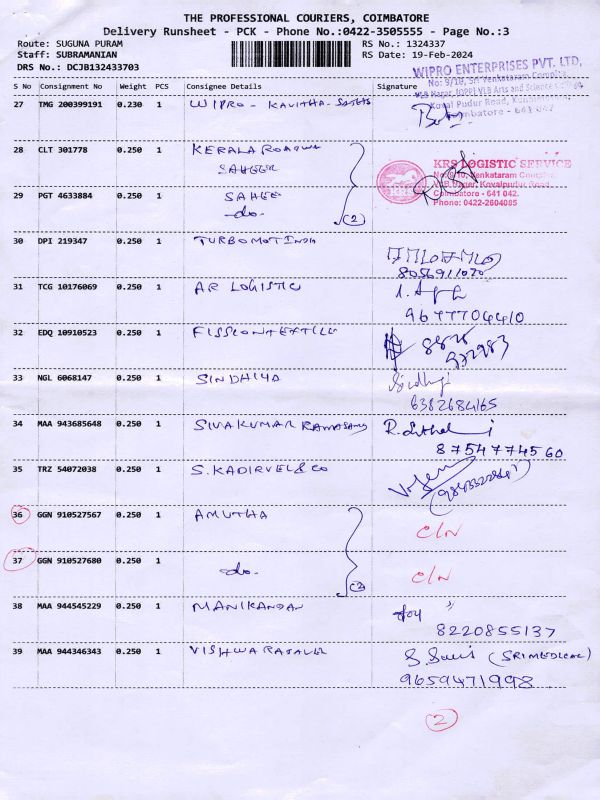 THE PROFESSIONAL COURIERS, COIMBATORE
Delivery Runsheet - PCK - Phone No.:0422-3505555 - Page No.:3
Route: SUGUNA PURAM RS No.: 1324337
Staff: SUBRAMANIAN RS Date: 19-Feb-2024
DRS No.: DCJB132433703
WIPRO ENTERPRISES PVT. LTD,
No: 9/1B, Sri Venkataram Complex,
VLB Arts and Science
Kovai Pudur Road,
Coimbatore - 641 042
S No Consignment No Weight PCS Consignee Details Signature
27 TMG 200399191 0.230 1 WIPRO - KAVITHA-
28 CLT 301778 0.250 1 KERALA
SAHEER
KRS LOGISTIC SERVICE
Venkataram Complex,
Nagar, Kovaipudur Road,
Coimbatore - 641 042.
Phone: 0422-2604085
29 PGT 4633884 0.250 1 SAHEE
-do- (2)
30 DPI 219347 0.250 1 TURBOMOT INDIA
8056911070
31 TCG 10176069 0.250 1 AR LOGISTIC
9677704410
32 EDQ 10910523 0.250 1 FISSIONTEXTILE
33 NGL 6068147 0.250 1 SINDHIYA
6382684165
34 MAA 943685648 0.250 1 SIVAKUMAR RAMASAMY
8754774560
35 TRZ 54072038 0.250 1 S. KADIRVEL & CO
36 GGN 910527567 0.250 1 AMUTHA C/N
37 GGN 910527680 0.250 1 -do- (2) C/N
38 MAA 944545229 0.250 1 MANIKANDAN
8220855137
39 MAA 944346343 0.250 1 VISHWARAJAVEL (SRIMEDICAL)
9659471998
2